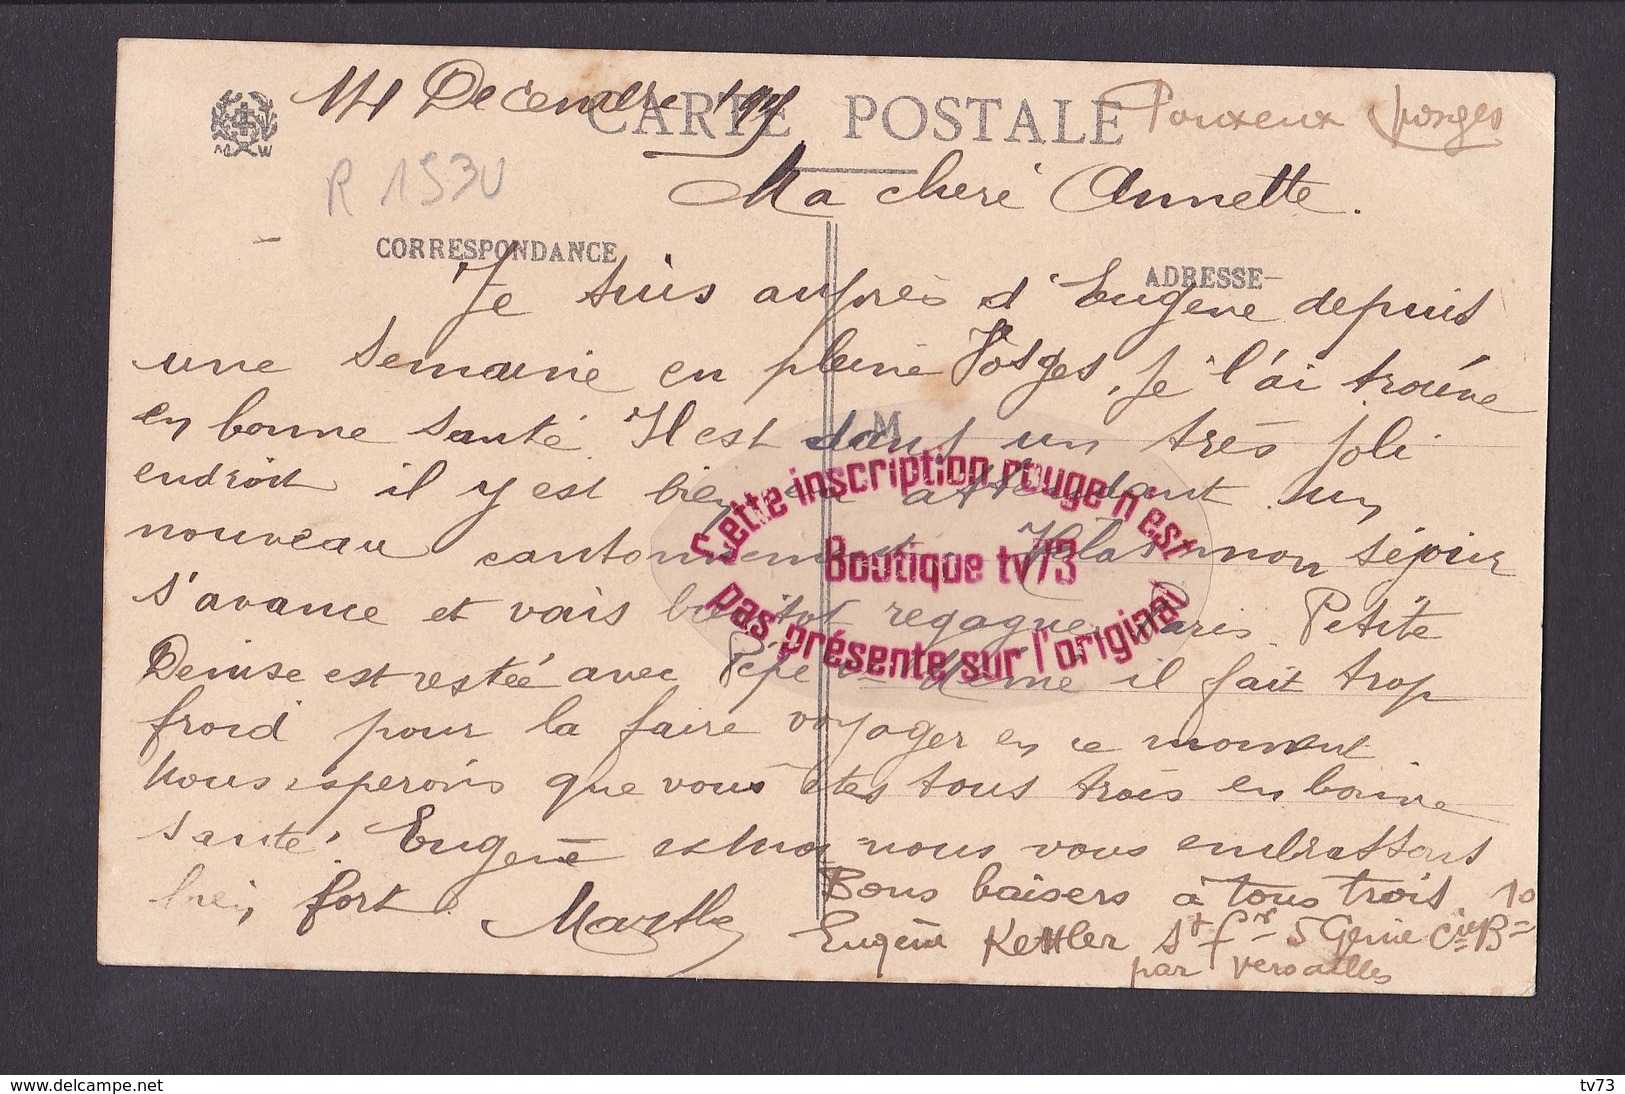 14 Décembre
CARTE POSTALE
Pouxeux Vosges
R 1530
Ma cheré Annette.
CORRESPONDANCE
ADRESSE
Je suis auprès d'Eugène depuis
une semaine en pleine Vosges, je l'ai trouvé
en bonne santé Il est dans un très joli
M
endroit il y est bien en attendant un
nouveau cantonnement. Hélas mon séjour
s'avance et vais bientot regagner Paris. Petite
Denise est restée avec Pépé et Mémé il fait trop
froid pour la faire voyager en ce moment
Nous esperons que vous êtes tous trois en bonne
santé. Eugène et moi nous vous embrassons
bien fort. Marthe
Bons baisers à tous trois
Eugène Kettler St fr 5 Génie Cie B 10
par Versailles
Cette inscription rouge n'est
Boutique tv73
pas présente sur l'original
www.delcampe.net
tv73